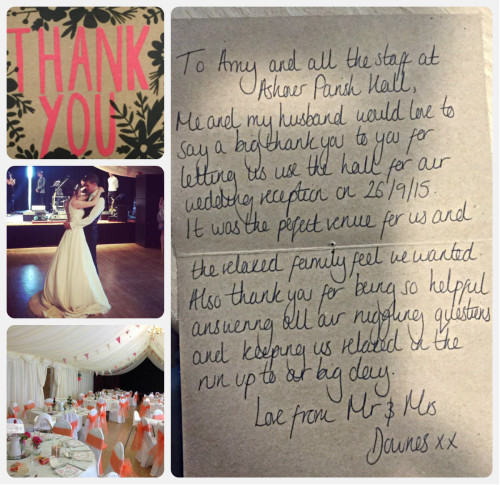 THANK
YOU
To Amy and all the staff at
Ashover Parish Hall,
Me and my husband would love to
say a big thank you to you for
letting us use the hall for our
wedding reception on 26/9/15.
It was the pefect venue for us and
the relaxed family feel we wanted.
Also thank you for being so helpful
answering all our niggling questions
and keeping us relaxed in the
run up to our big day.
Love from Mr & Mrs
Downes xx